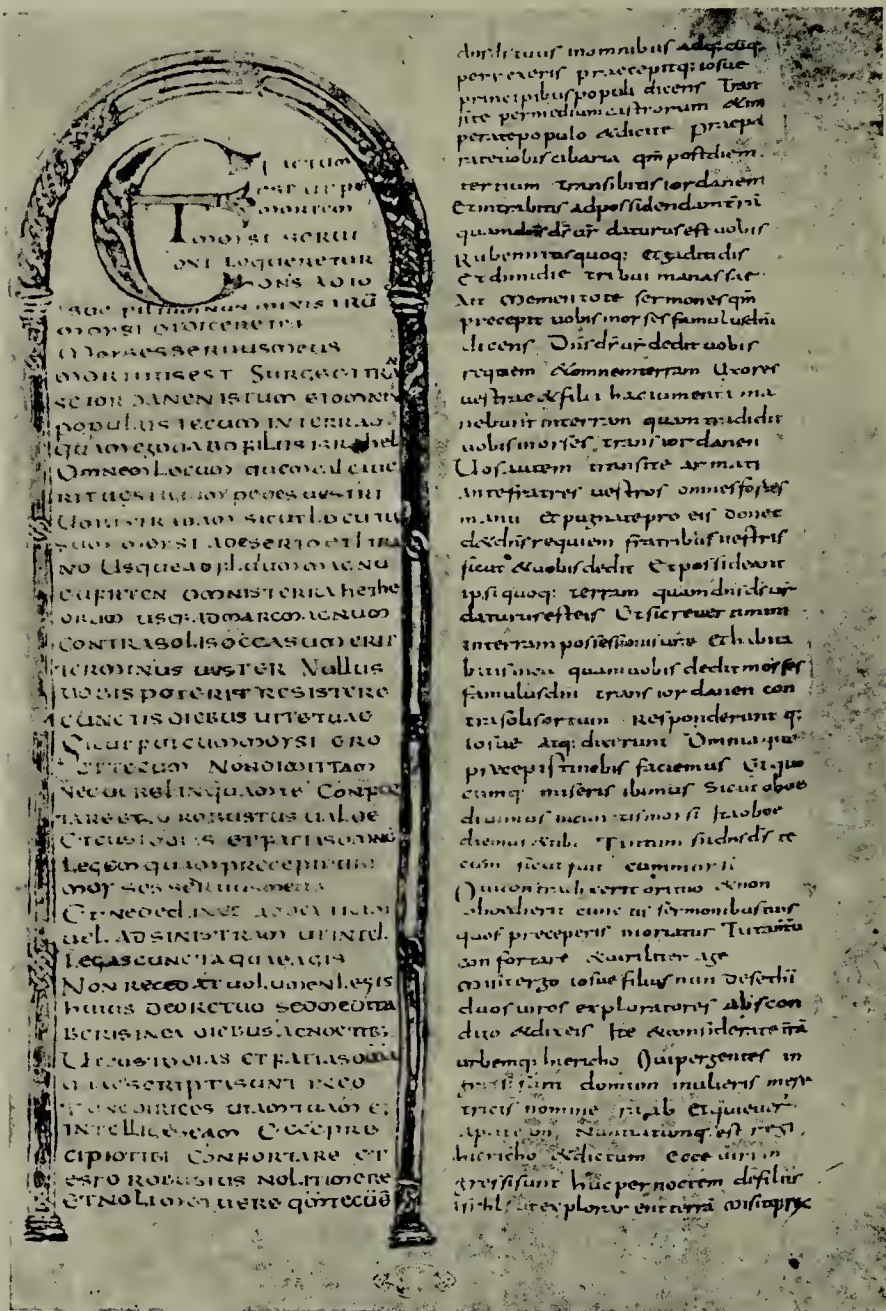 Et factum
est ut post
mortem
moysi serui
dni loqueretur
dns ad io
sue filium nun ministrū
moysi et diceret ei
Moyses seruus meus
mortuus est Surge et trā
si iordanen istum et omnis
populus tecum in terra
quam ego dabo filiis israhel
Omnem locum quem calcaue
rit uestigium pedes uestri
uobis tradam sicut locutu
sum moysi A deserto et liba
no usque ad fluuium magnū
eufraten omnis terra hetthe
orum usq; ad mare magnum
contra solis occasum erit
terminus uester Nullus
uobis poterit resistere
cunctis diebus uite tuae
Sicut fui cum moysi ero
et tecum Non dimittam
nec derelinquam te Confor
tare et esto robustus ualde
et custodias et facias omnē
legem quam precepit tibi
moyses seruus meus
Et ne declines ab ea
uel ad sinistram ut intel
legas cuncta quae agis
Non recedat uolumen legis
huius de ore tuo sed medita
beris in ea diebus ac noctib;
Ut custodias et facias omnia
quae scripta sunt in eo
Tunc diriges uiam tuam et
intelliges eam Ecce pre
cipio tibi Confortare et
esto robustus Noli timere
et noli metuere qm̄ tecū ē
dns ds tuus in omnibus adquecūq;
perrexeris praecepitq; iosue
principibus populi dicens Tran
site per medium castrorum & im
perate populo & dicite Praepa
rate uobis cibaria qm̄ post diem
tertium transibitis iordanem
Et intrabitis ad possidendam terrā
quam dn̄s ds̄ ur̄ daturus est uobis
Rubenitis quoq; et gaditidis
Et dimidie tribui manasse
Ait Mementote sermones qm̄
precepit uobis moyses famulus dn̄i
dicens Dn̄s ds̄ ur̄ dedit uobis
requiem & omnem terram Uxores
uestrae & filii hac iumenta ma
nebunt in terram quam tradidit
uobis moyses trans iordanen
Uos autem transite armati
ante fratres uestros omnes fortes
manu et pugnate pro eis donec
d& dn̄s requiem fratribus uestris
sicut & uobis dedit Et possideant
ipsi quoq; terram quam dn̄s ds̄ ur̄
daturus est eis Et sic reuertimini
in terram possessionis urae Et habita
bitis in ea quam uobis dedit moyses
famulus dn̄i trans iordanen con
tra solis ortum Responderunt q;
iosue atq; dixerunt Omnia que
precepisti nobis faciemus Et quo
cumq; miseris ibimus Sicut oboe
diuimus in cunctis moysi Ita oboe
diemus & tibi Tantum sit dn̄s ds̄ te
cum sicut fuit cum moysi
Qui contradixerit ori tuo & non
oboedierit cunctis sermonibus tuis
quos preceperis moriatur Tu tantū
confortare & uiriliter age
Misit ergo iosue filius nun de sethī
duos uiros exploratores abscon
dito & dixit eis Ite & considerate trā
urbemq; hiericho Qui pergentes in
gressi sunt domum mulieris mere
tricis nomine raab Et quieuer
apud eam Nuntiatumq; est regi
hiericho & dictum Ecce uiri in
gressi sunt huc per noctem de filiis
isrhl ut explorarent terrā misitq; rex